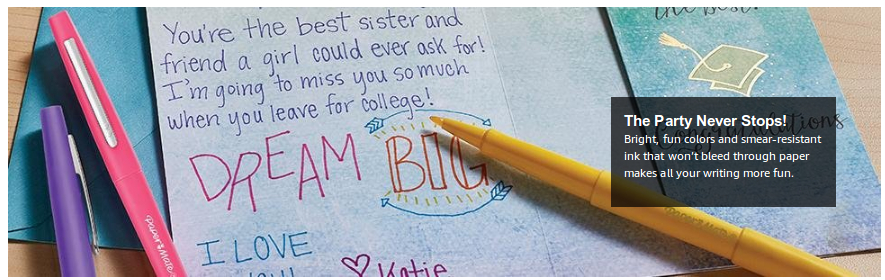 You're the best sister and
friend a girl could ever ask for!
I'm going to miss you so much
when you leave for college!
DREAM BIG
I LOVE
Katie
the best!
Congratulations
The Party Never Stops!
Bright, fun colors and smear-resistant
ink that won't bleed through paper
makes all your writing more fun.
Paper Mate
Paper Mate